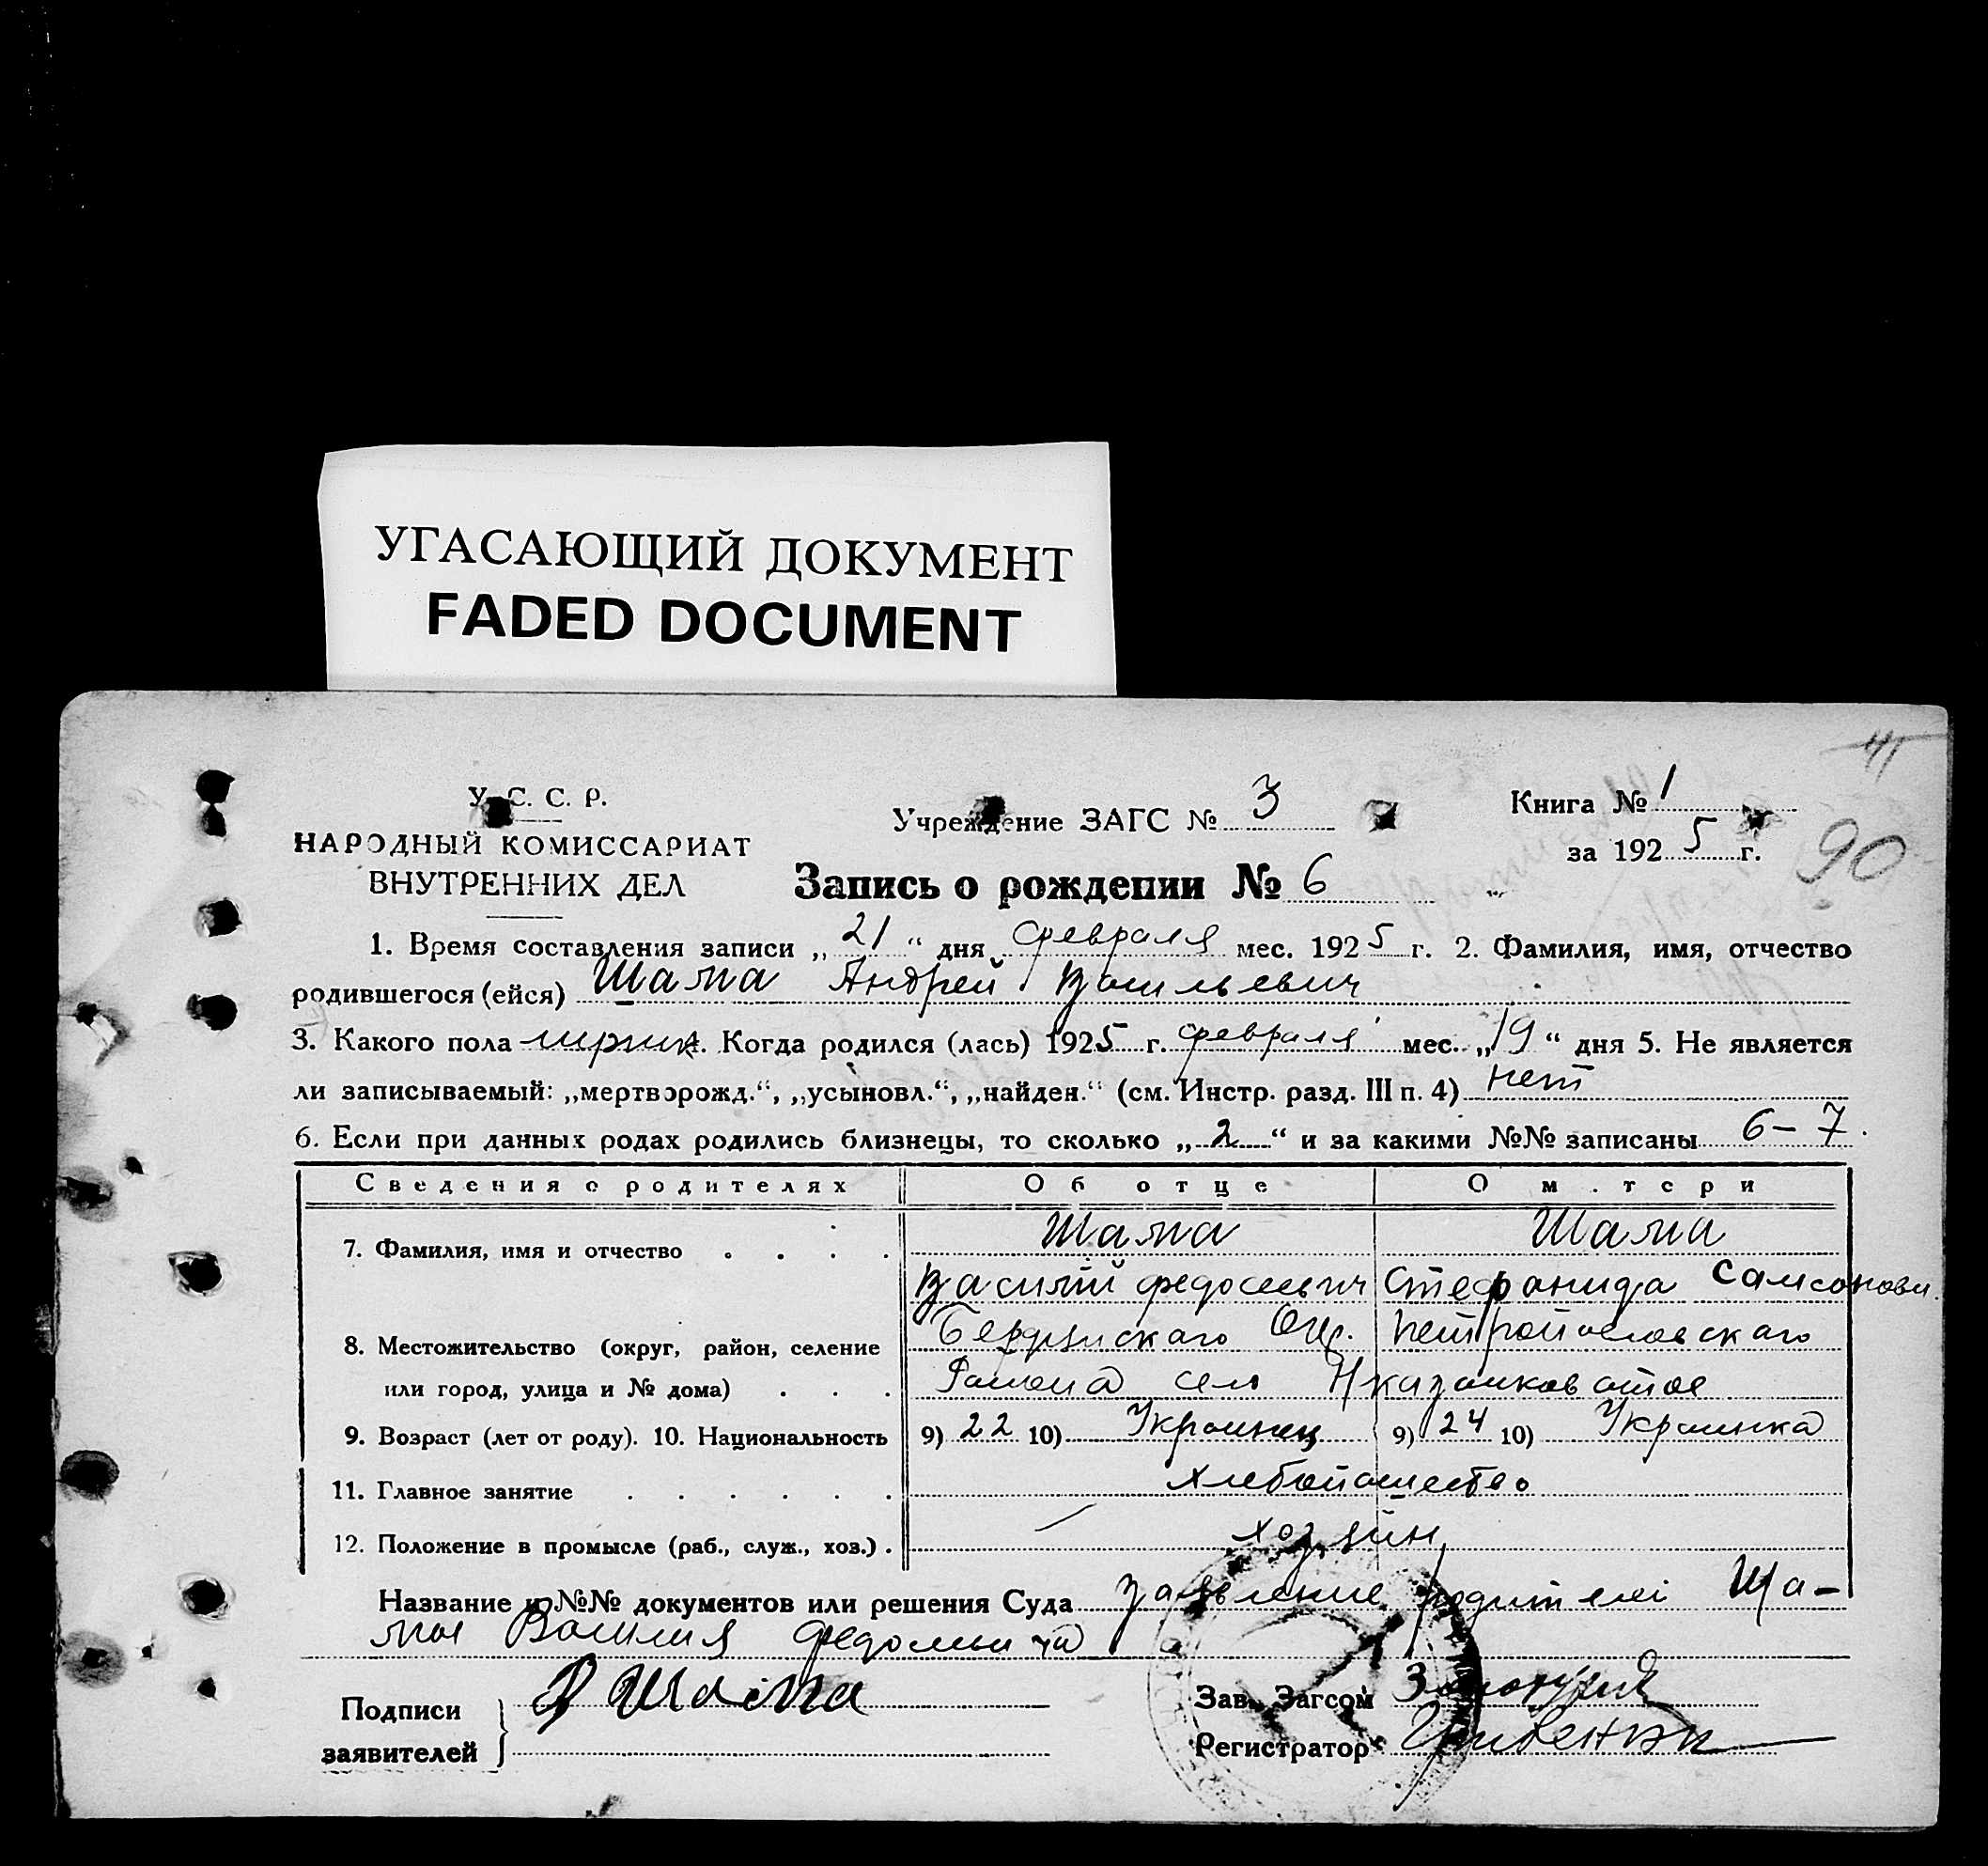 УГАСАЮЩИЙ ДОКУМЕНТ
FADED DOCUMENT
У. С. С. Р.
НАРОДНЫЙ КОМИССАРИАТ
ВНУТРЕННИХ ДЕЛ
Учреждение ЗАГС № 3
Книга № 1
за 1925 г.
90
Запись о рождении № 6
1. Время составления записи „21“ дня февраля мес. 1925 г. 2. Фамилия, имя, отчество
родившегося (ейся) Шама Андрей Васильевич
3. Какого пола 4. Когда родился (лась) 1925 г. февраля мес. „19“ дня 5. Не является
ли записываемый: „мертворожд.“, „усыновл.“, „найден.“ (см. Инстр. разд. III п. 4) нет
6. Если при данных родах родились близнецы, то сколько „2“ и за какими №№ записаны 6-7
Сведения о родителях Об отце О матери
7. Фамилия, имя и отчество Шама Шама
Василий Федосеевич Стефанида Самсонови
8. Местожительство (округ, район, селение Бердянского Окр. Петропавловского
или город, улица и № дома) Района село
9. Возраст (лет от роду). 10. Национальность 9) 22 10) Украинец 9) 24 10) Украинка
11. Главное занятие хлебопашество
12. Положение в промысле (раб., служ., хоз.) хозяин
Название и №№ документов или решения Суда заявление родителей Ша-
мы Василия
Подписи
заявителей
Шама
Зав. Загсом
Регистратор